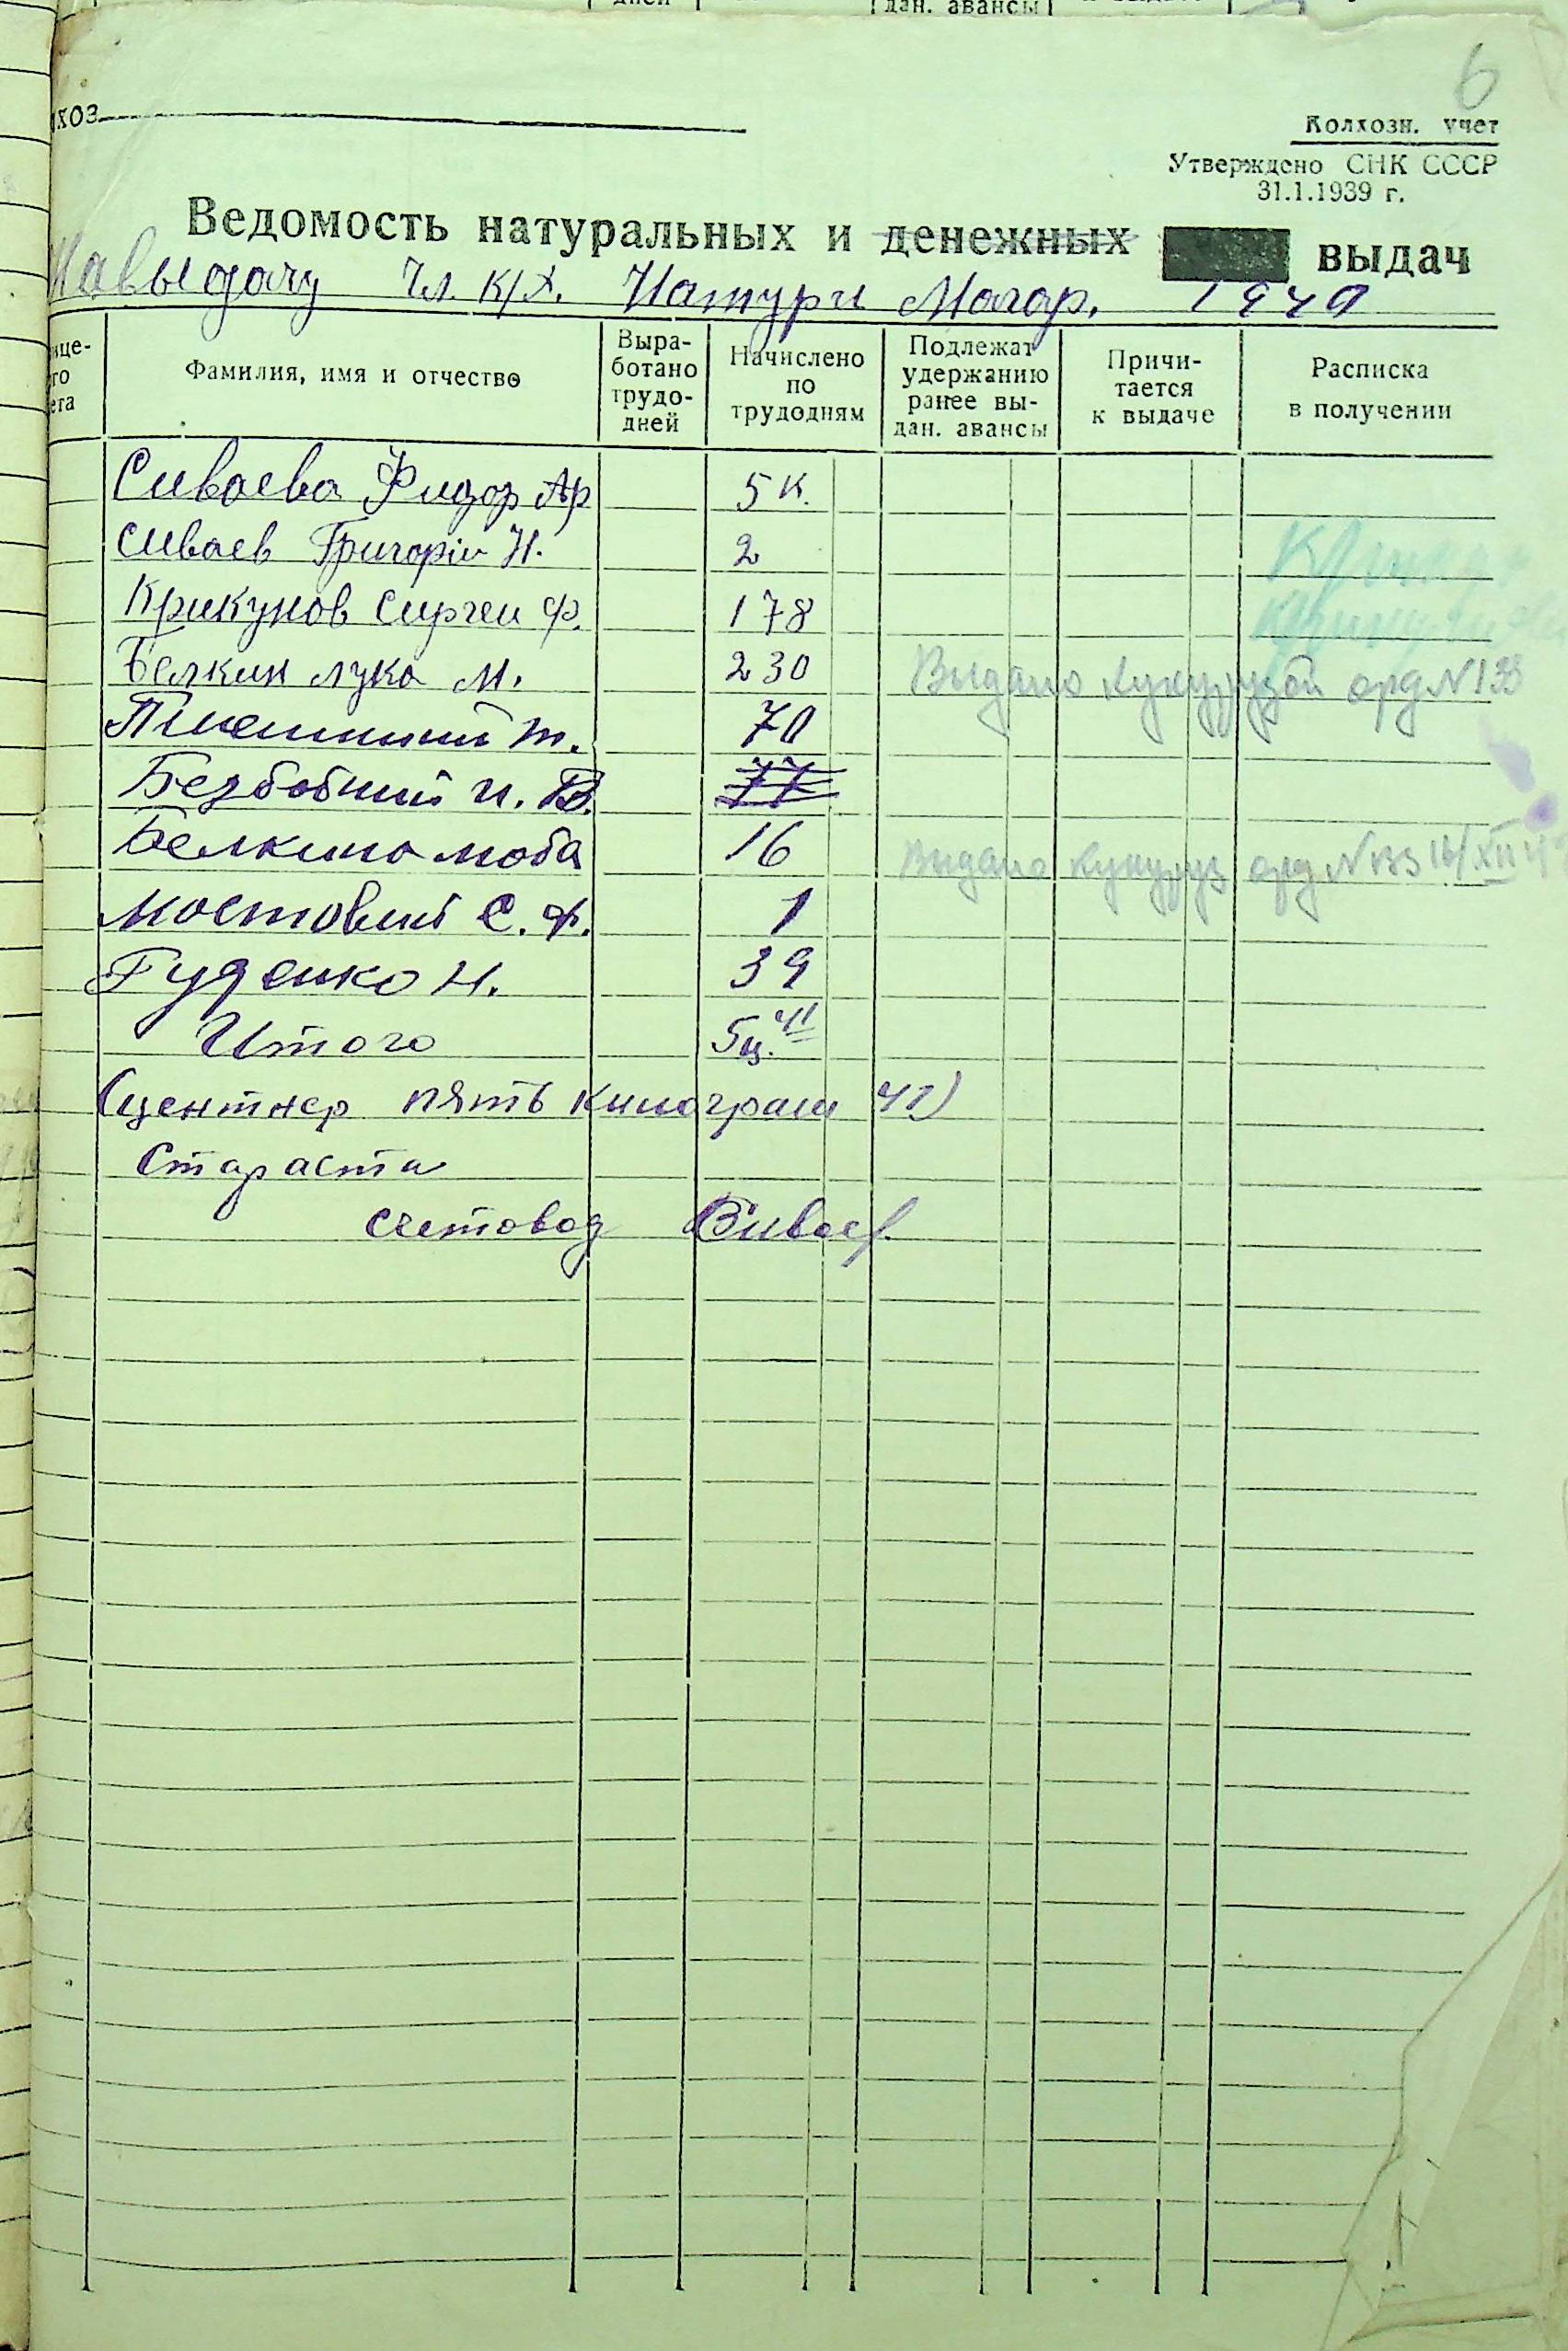 дней
дан. авансы
6
хоз
Колхозн. учет
Утверждено СНК СССР
31.1.1939 г.
Ведомость натуральных и денежных выдач
На выдачу чл. к/х. Натури Могар. 1940
Фамилия, имя и отчество
Выра-
ботано
трудо-
дней
Начислено
по
трудодням
Подлежат
удержанию
ранее вы-
дан. авансы
Причи-
тается
к выдаче
Расписка
в получении
Сиваева Фидор Ар 5 к.
Сиваев Григорiи Н. 2
Крикунов Сиргеи Ф. 178
Белкин лука М. 230 Выдано кукурузой орд N 133
Пшеничний т. 70
Безбобний и. В. 77
Белкина люба 16 Выдано кукуруз орд N 133 16/XII
Мостовий С. Ф. 1
Гуденко Н. 39
Итого 5 ц. 41
(центнер пять килограм 41)
Стараста
счетовод Сиваев